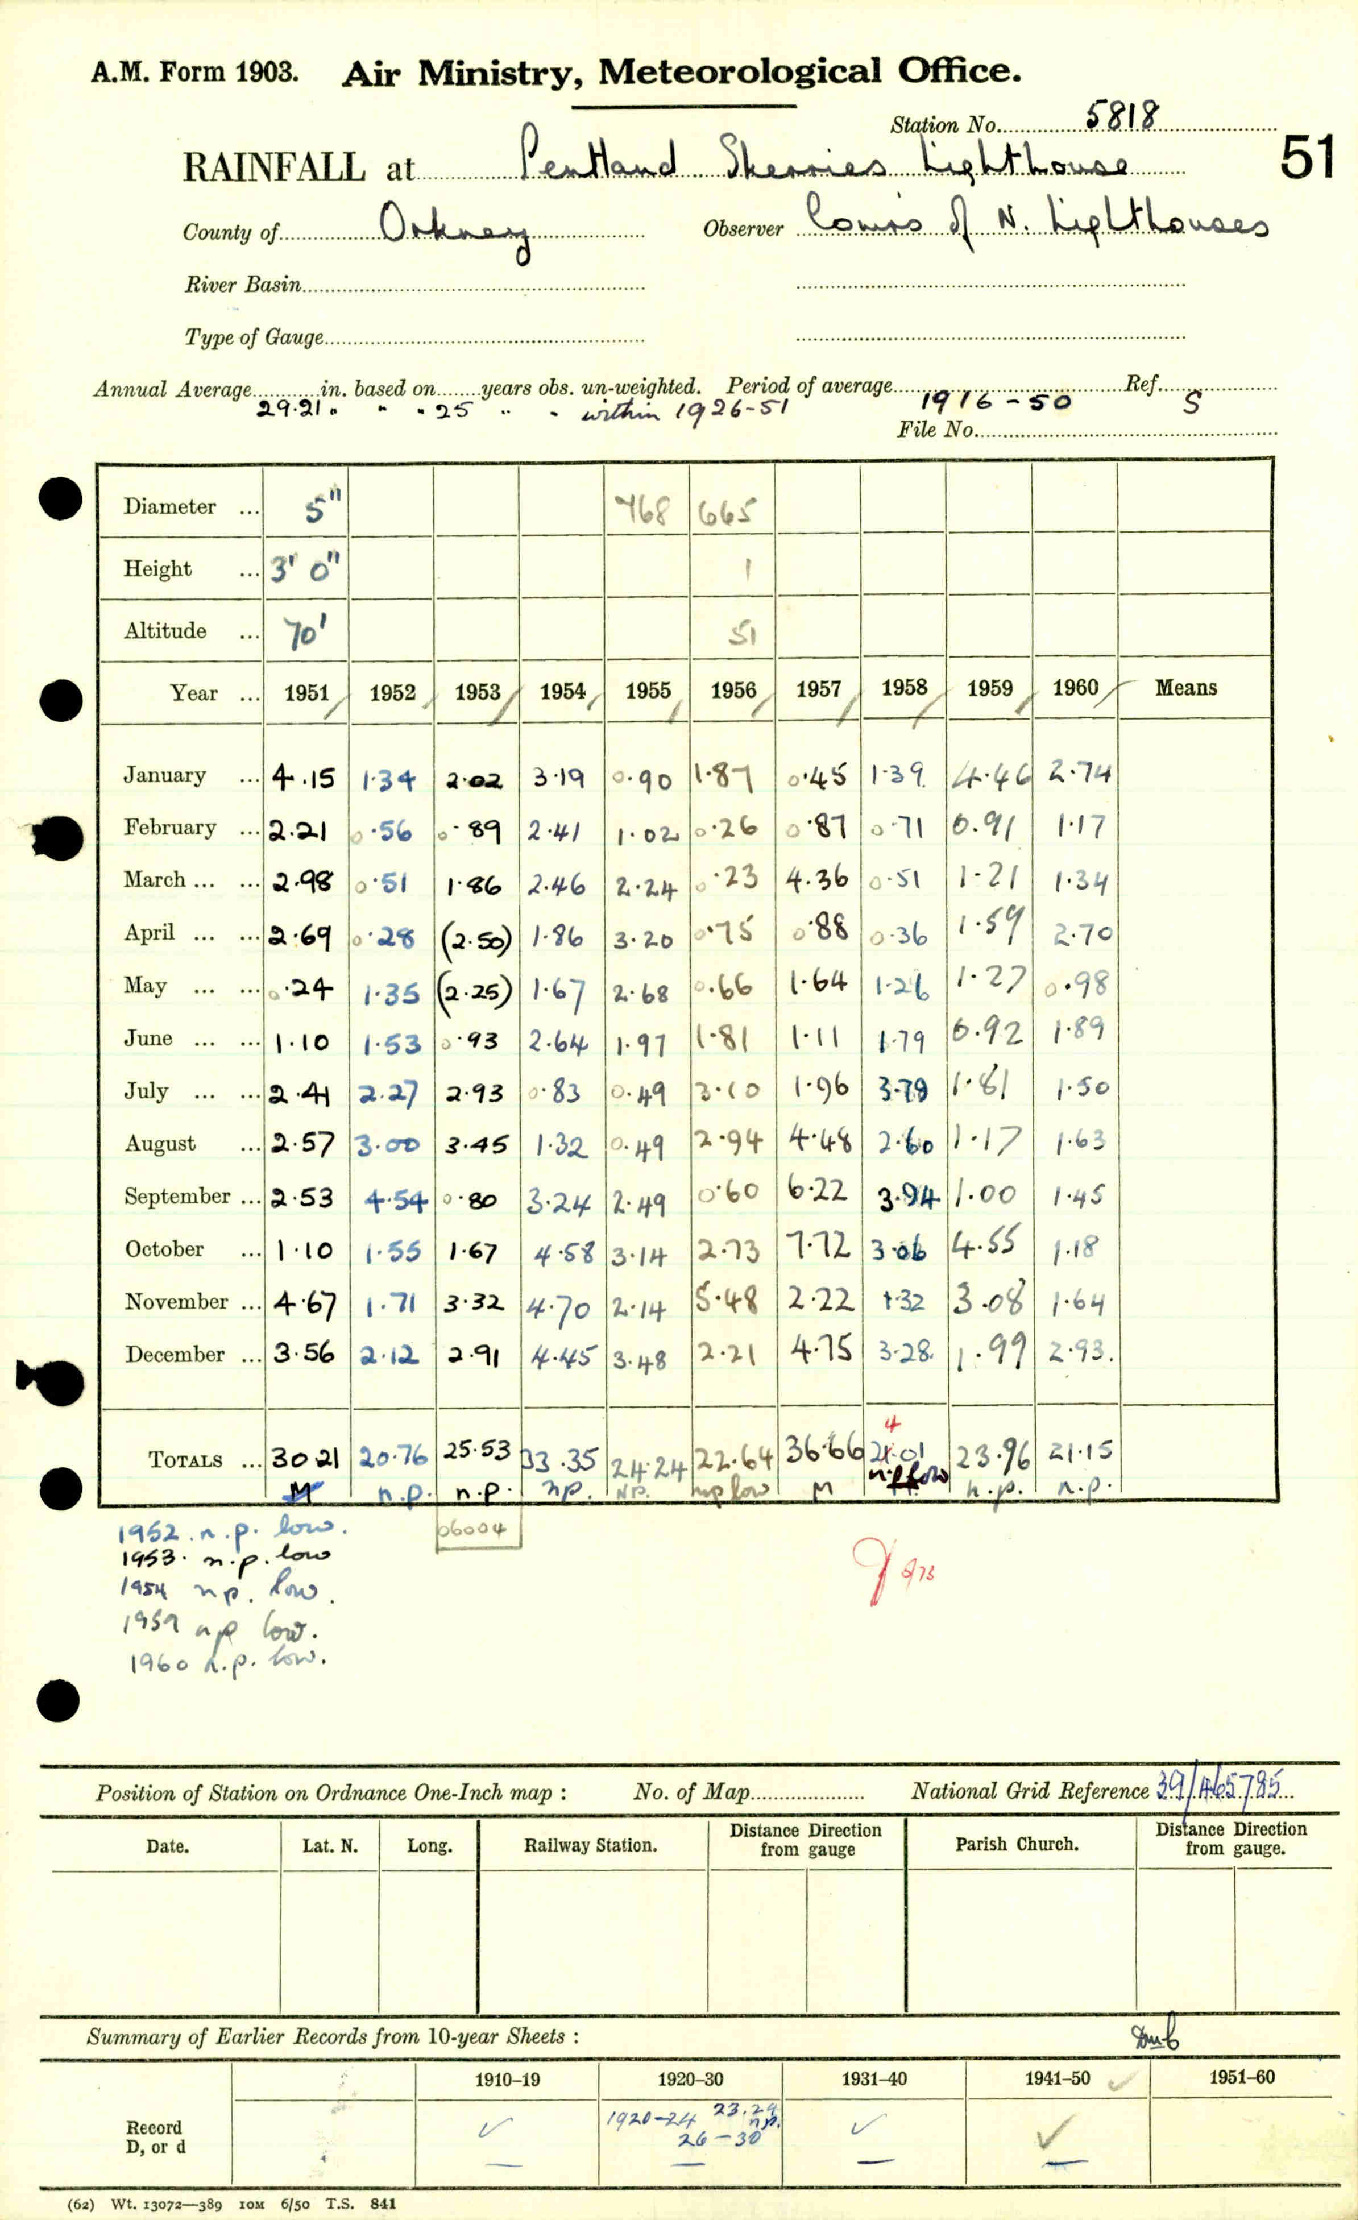 A.M. Form 1903. Air Ministry, Meteorological Office.
Station No. 5818
51
RAINFALL at Pentland Skerries Lighthouse
County of Orkney Observer Com'rs of N. Lighthouses
River Basin
Type of Gauge
Annual Average in. based on years obs. un-weighted. Period of average 1916-50 Ref. S
29.21 " " " 25 " " within 1926-51
File No.
Diameter ... 5" 768 665
Height ... 3' 0" 1
Altitude ... 70' 51
Year ... 1951 1952 1953 1954 1955 1956 1957 1958 1959 1960 Means
January ... 4.15 1.34 2.02 3.19 0.90 1.87 0.45 1.39 4.46 2.74
February ... 2.21 0.56 0.89 2.41 1.02 0.26 0.87 0.71 0.91 1.17
March ... ... 2.98 0.51 1.86 2.46 2.24 0.23 4.36 0.51 1.21 1.34
April ... ... 2.69 0.28 (2.50) 1.86 3.20 0.75 0.88 0.36 1.59 2.70
May ... ... 0.24 1.35 (2.25) 1.67 2.68 0.66 1.64 1.26 1.27 0.98
June ... ... 1.10 1.53 0.93 2.64 1.97 1.81 1.11 1.79 0.92 1.89
July ... ... 2.41 2.27 2.93 0.83 0.49 3.10 1.96 3.79 1.81 1.50
August ... 2.57 3.00 3.45 1.32 0.49 2.94 4.48 2.60 1.17 1.63
September ... 2.53 4.54 0.80 3.24 2.49 0.60 6.22 3.94 1.00 1.45
October ... 1.10 1.55 1.67 4.58 3.14 2.73 7.72 3.06 4.55 1.18
November ... 4.67 1.71 3.32 4.70 2.14 5.48 2.22 1.32 3.08 1.64
December ... 3.56 2.12 2.91 4.45 3.48 2.21 4.75 3.28 1.99 2.93.
4
TOTALS ... 30.21 20.76 25.53 33.35 24.24 22.64 36.66 21.01 23.96 21.15
M n.p. n.p. np. NP. np low M n.p. low n.p. n.p.
1952 n.p. low. 06004
1953. n.p. low
1954 n.p. low.
1959 n.p low.
1960 n.p. low.
5/73
Position of Station on Ordnance One-Inch map : No. of Map National Grid Reference 39/465785
Date. Lat. N. Long. Railway Station. Distance Direction from gauge Parish Church. Distance Direction from gauge.
Summary of Earlier Records from 10-year Sheets : DMB
1910–19 1920–30 1931–40 1941–50 1951–60
Record D, or d 1920-24 23.29 n.p.
26-30
(62) Wt. 13072—389 10M 6/50 T.S. 841